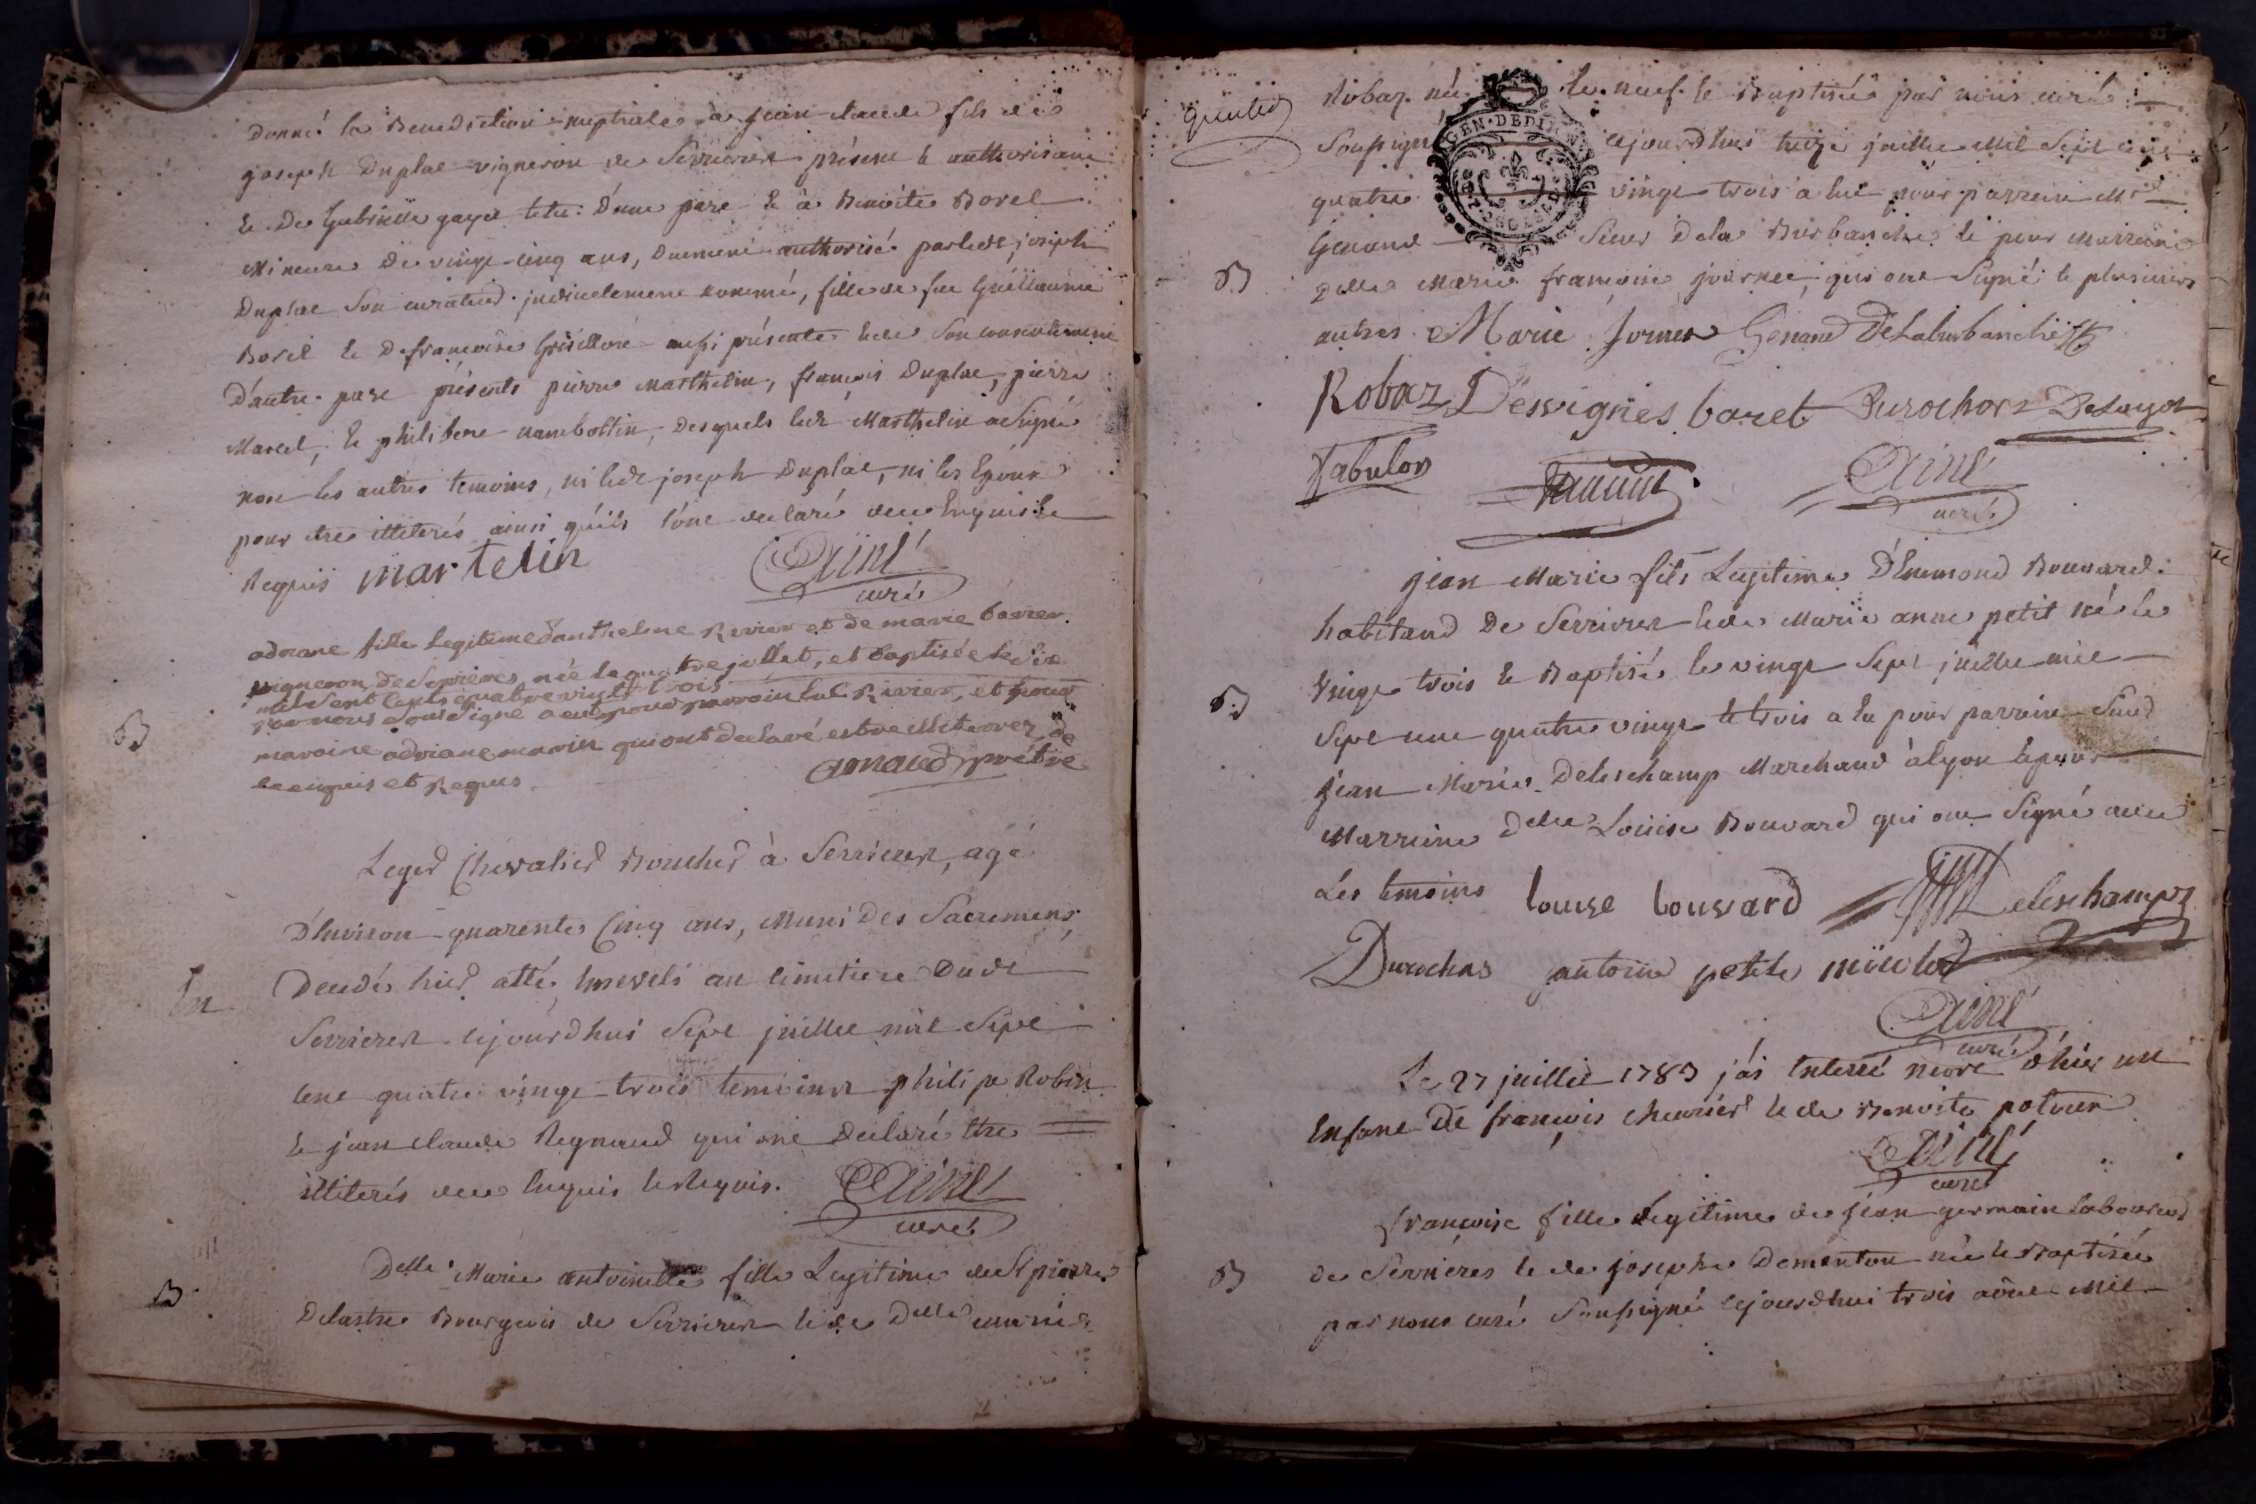 donné la Benediction nuptiale à jean claude fils de
joseph Duplat vigneron de Serrieres présent et authorisant
et de Gabrielle gayet d'une part et à Benoite Borel
Mineure de vingt cinq ans, duement authorisé par led. joseph
Duplat son curateur judicielement nommé, fille de feu Guillaume
Borel et de françoise aussi présente et de son consentement
D'autre part présents pierre Marthelin, françois Duplat, pierre
Marcel, et philibert nambottin, desquels led. Marthelin a signé
non les autres temoins, ni led. joseph Duplat, ni les Epoux
pour etre illiterés ainsi qu'ils l'ont declaré de ce Enquis et
Requis martelin
curé
adriane fille legitime d'anthelme Rivier et de marie
vigneron de Serrieres, née le quatre jullet, et baptisée le six
mil sept cents quatre vingt trois
par nous soussigné a eut pour parrain Rivier, et pour
maraine adriane qui ont declaré estre illiterez de
ce enquis et Requis. arnaud prêtre
B
Leger Chevalier Boucher à Serrieres, agé
D'Environ quarente Cinq ans, Muni des Sacremens,
Decedé hier a été Enseveli au cimetiere dud.
En
Serrieres cejourdhui Sept juillet mil Sept
cent quatre vingt trois temoins philipe Robin
et jean claude Regnaud qui ont Declaré etre
illiterés de ce Enquis et Requis.
curé
Delle Marie antoinette fille Legitime de Sr pierre
B
Delastre Bourgeois de Serrieres et de Delle marie
Robaz née le neuf et Baptisée par nous curé
Soussigné cejourdhui treize juillet Mil Sept cent
GEN·DE DIJON
quatre vingt trois a eu pour parrein Mr
Genand Sieur Dela Burbanche et pour Marreine
B
Delle Marie françoise journet, qui ont Signé et plusieurs
autres Marie Jornet Genand DeLaburbanche
Robaz Desvignes baret Durochat Delayot
Tabulon
curé
jean Marie fils Legitime D'Emmond Bouvard
habitand De Serrieres et de Marie anne petit né le
B
vingt trois et Baptisé le vingt Sept juillet mil
Sept cent quatre vingt et trois a Eu pour parrain Sieur
jean Marie Deleschamp Marchand à lyon et pour
Marreine Delle Louise Bouvard qui ont Signé avec
Les temoins louise bouvard Deleschamps
Durochat antoine petit
curé
Le 27 juillet 1783 j'ai Enterré mort d'hier un
Enfant De françois cheurier et de Benoite
curé
françoise fille Legitime de jean germain laboureur
B
de Serrieres et de josephe Dementon née et Baptisée
par nous curé Soussigné cejourdhui trois aôut Mil